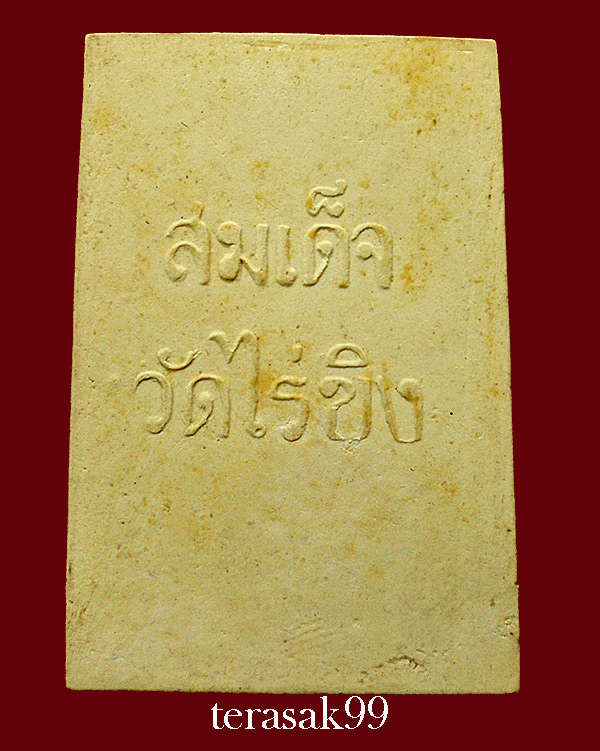 สมเด็จ
วัดไร่ขิง
terasak99